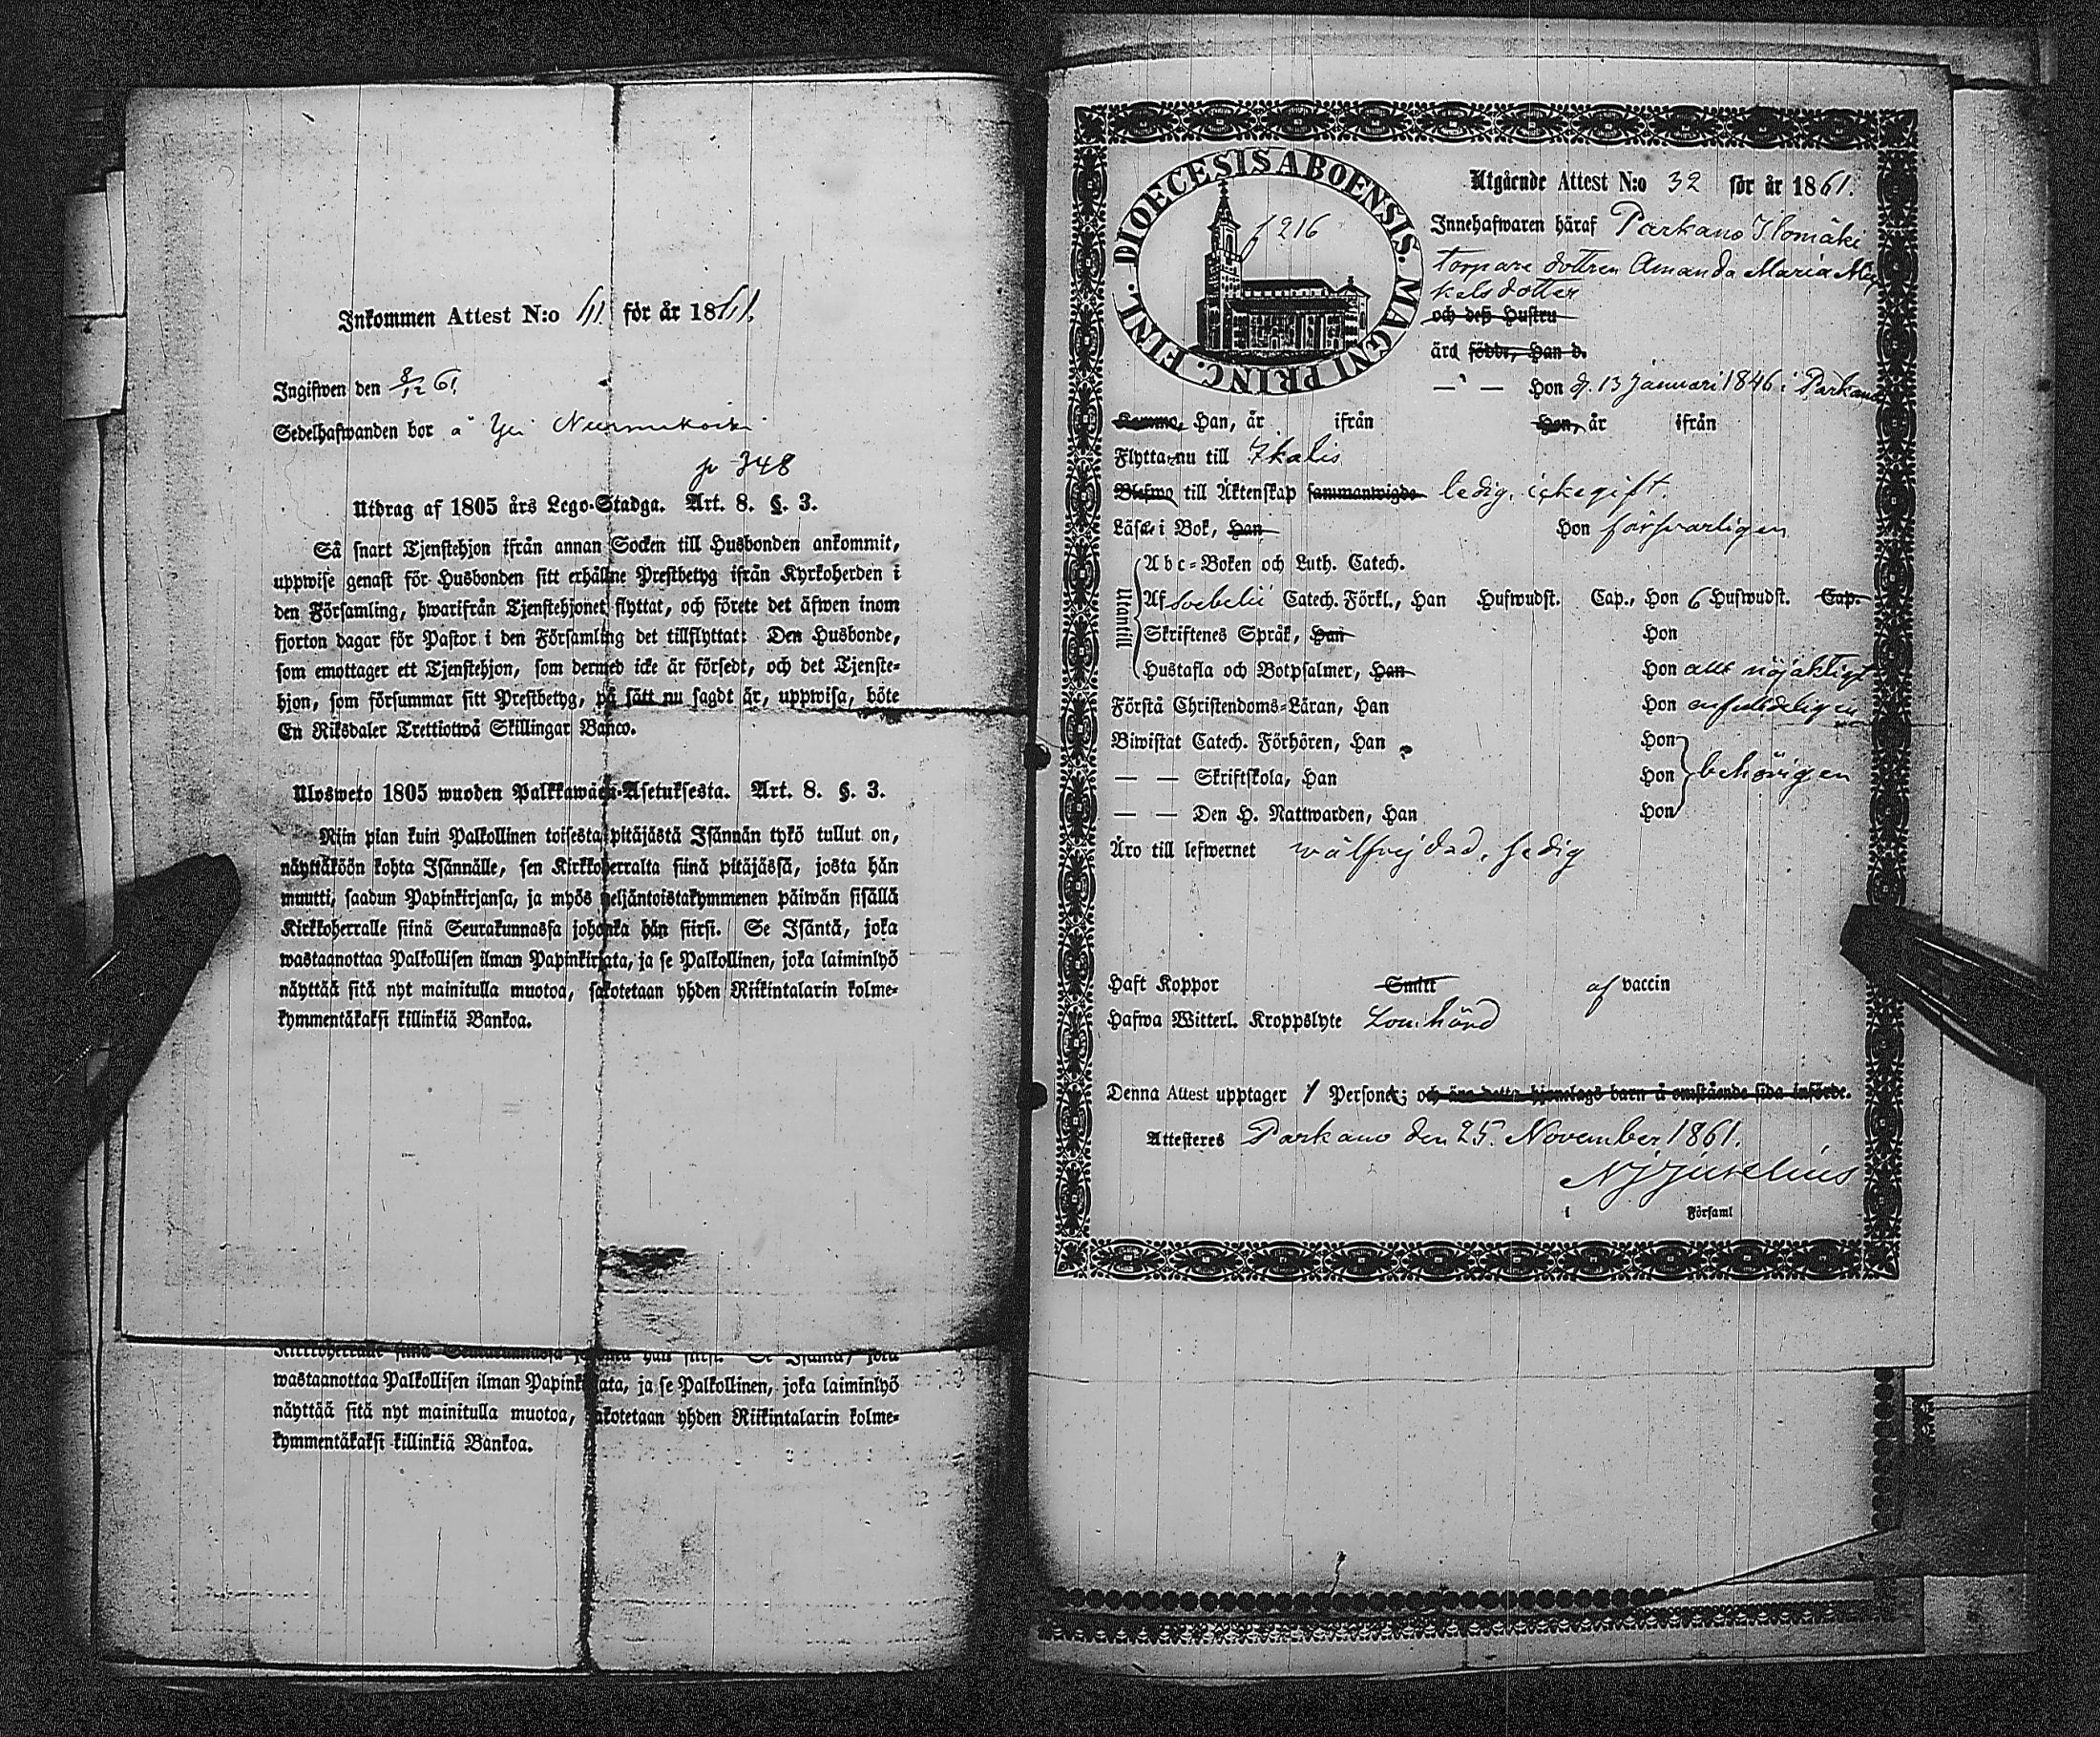 Inkommen Attest N:o 61. för år 1861.
Ingifwen den 8/12 61
Sedelhafwanden bor å Yli
p 348
Utdrag af 1805 års Lego-Stadga. Art. 8. §. 3.
Så snart Tjenstehjon ifrån annan Socken till Husbonden ankommit,
uppwise genast för Husbonden sitt erhållne Prestbetyg ifrån Kyrkoherden i
den Församling, hwarifrån Tjenstehjonet flyttat, och förete det äfwen inom
fjorton dagar för Pastor i den Församling det tillflyttat: Den Husbonde,
som emottager ett Tjenstehjon, som dermed icke är försedt, och det Tjenste-
hjon, som försummar sitt Prestbetyg, på sätt nu sagdt är, uppwisa, böte
En Riksdaler Trettiotwå Skillingar Banco.
Ulosweto 1805 wuoden Palkkawäen-Asetuksesta. Art. 8. §. 3.
Niin pian kuin Palkollinen toisesta pitäjästä Isännän tykö tullut on,
näyttäköön kohta Isännälle, sen Kirkkoherralta siinä pitäjässä, josta hän
muutti, saadun Papinkirjansa, ja myös neljäntoistakymmenen päiwän sisällä
Kirkkoherralle siinä Seurakunnassa johonka hän siirsi. Se Isäntä, joka
wastaanottaa Palkollisen ilman Papinkirjata, ja se Palkollinen, joka laiminlyö
näyttää sitä nyt mainitulla muotoa, sakotetaan yhden Riikintalarin kolme-
kymmentäkaksi killinkiä Bankoa.
Kirkkoherralle siinä Seurakunnassa johonka hän siirsi. Se Isäntä, joka
wastaanottaa Palkollisen ilman Papinkirjata, ja se Palkollinen, joka laiminlyö
näyttää sitä nyt mainitulla muotoa, sakotetaan yhden Riikintalarin kolme-
kymmentäkaksi killinkiä Bankoa.
DIOECESIS ABOENSIS. MAGNI PRINC. FINL.
p 216
Utgående Attest N:o 32 för år 1861.
Innehafwaren häraf Parkano Ilomäki
torpare dottren Amanda Maria Mic
kelsdotter
och deß Hustru
ärd födde, Han d.
— " — Hon d. 13 Januari 1846 i Parkano
Komme, Han, år ifrån Hon, år ifrån
Flytta nu till Ikalis
Blefwo till Äktenskap sammanwigde ledig, icke gift.
Läsa i Bok, Han Hon försvarligen
Utantill
Abc-Boken och Luth. Catech.
Af Svebelii Catech. Förkl., Han Hufwudst. Cap., Hon 6 Hufwudst. Cap.
Skriftenes Språk, Han Hon
Hustafla och Botpsalmer, Han Hon allt nöjaktigt
Förstå Christendoms-Läran, Han Hon enfaldeligen
Biwistat Catech. Förhören, Han Hon
— — Skriftskola, Han Hon behörigen
— — Den H. Nattwarden, Han Hon
Äro till lefwernet wälfrejdad, ledig
Haft Koppor Smitt af vaccin
Hafwa Witterl. Kroppslyte
Denna Attest upptager 1 Person; och äro detta hjonelags barn å omstående sida införde.
Attesteres Parkano den 25. November 1861.
i Församl